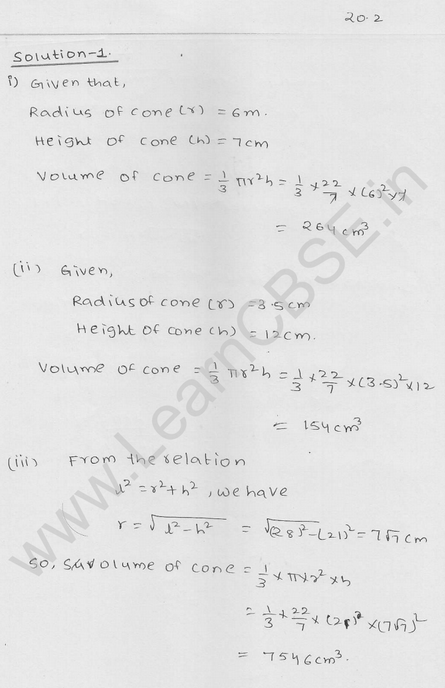 20.2
Solution-1.
i) Given that,
Radius of cone (r) = 6m.
Height of cone (h) = 7cm
Volume of cone = 1/3 πr²h = 1/3 × 22/7 × (6)² × 7
= 264cm³
(ii) Given,
Radius of cone (r) = 3.5cm
Height of cone (h) = 12cm.
Volume of cone = 1/3 πr²h = 1/3 × 22/7 × (3.5)² × 12
= 154cm³
(iii) From the relation
l² = r² + h², we have
r = √(l² - h²) = √(28)² - (21)² = 7√7 cm
So, volume of cone = 1/3 × π × r² × h
= 1/3 × 22/7 × × (7√7)²
= 7546cm³.
www.LearnCBSE.in